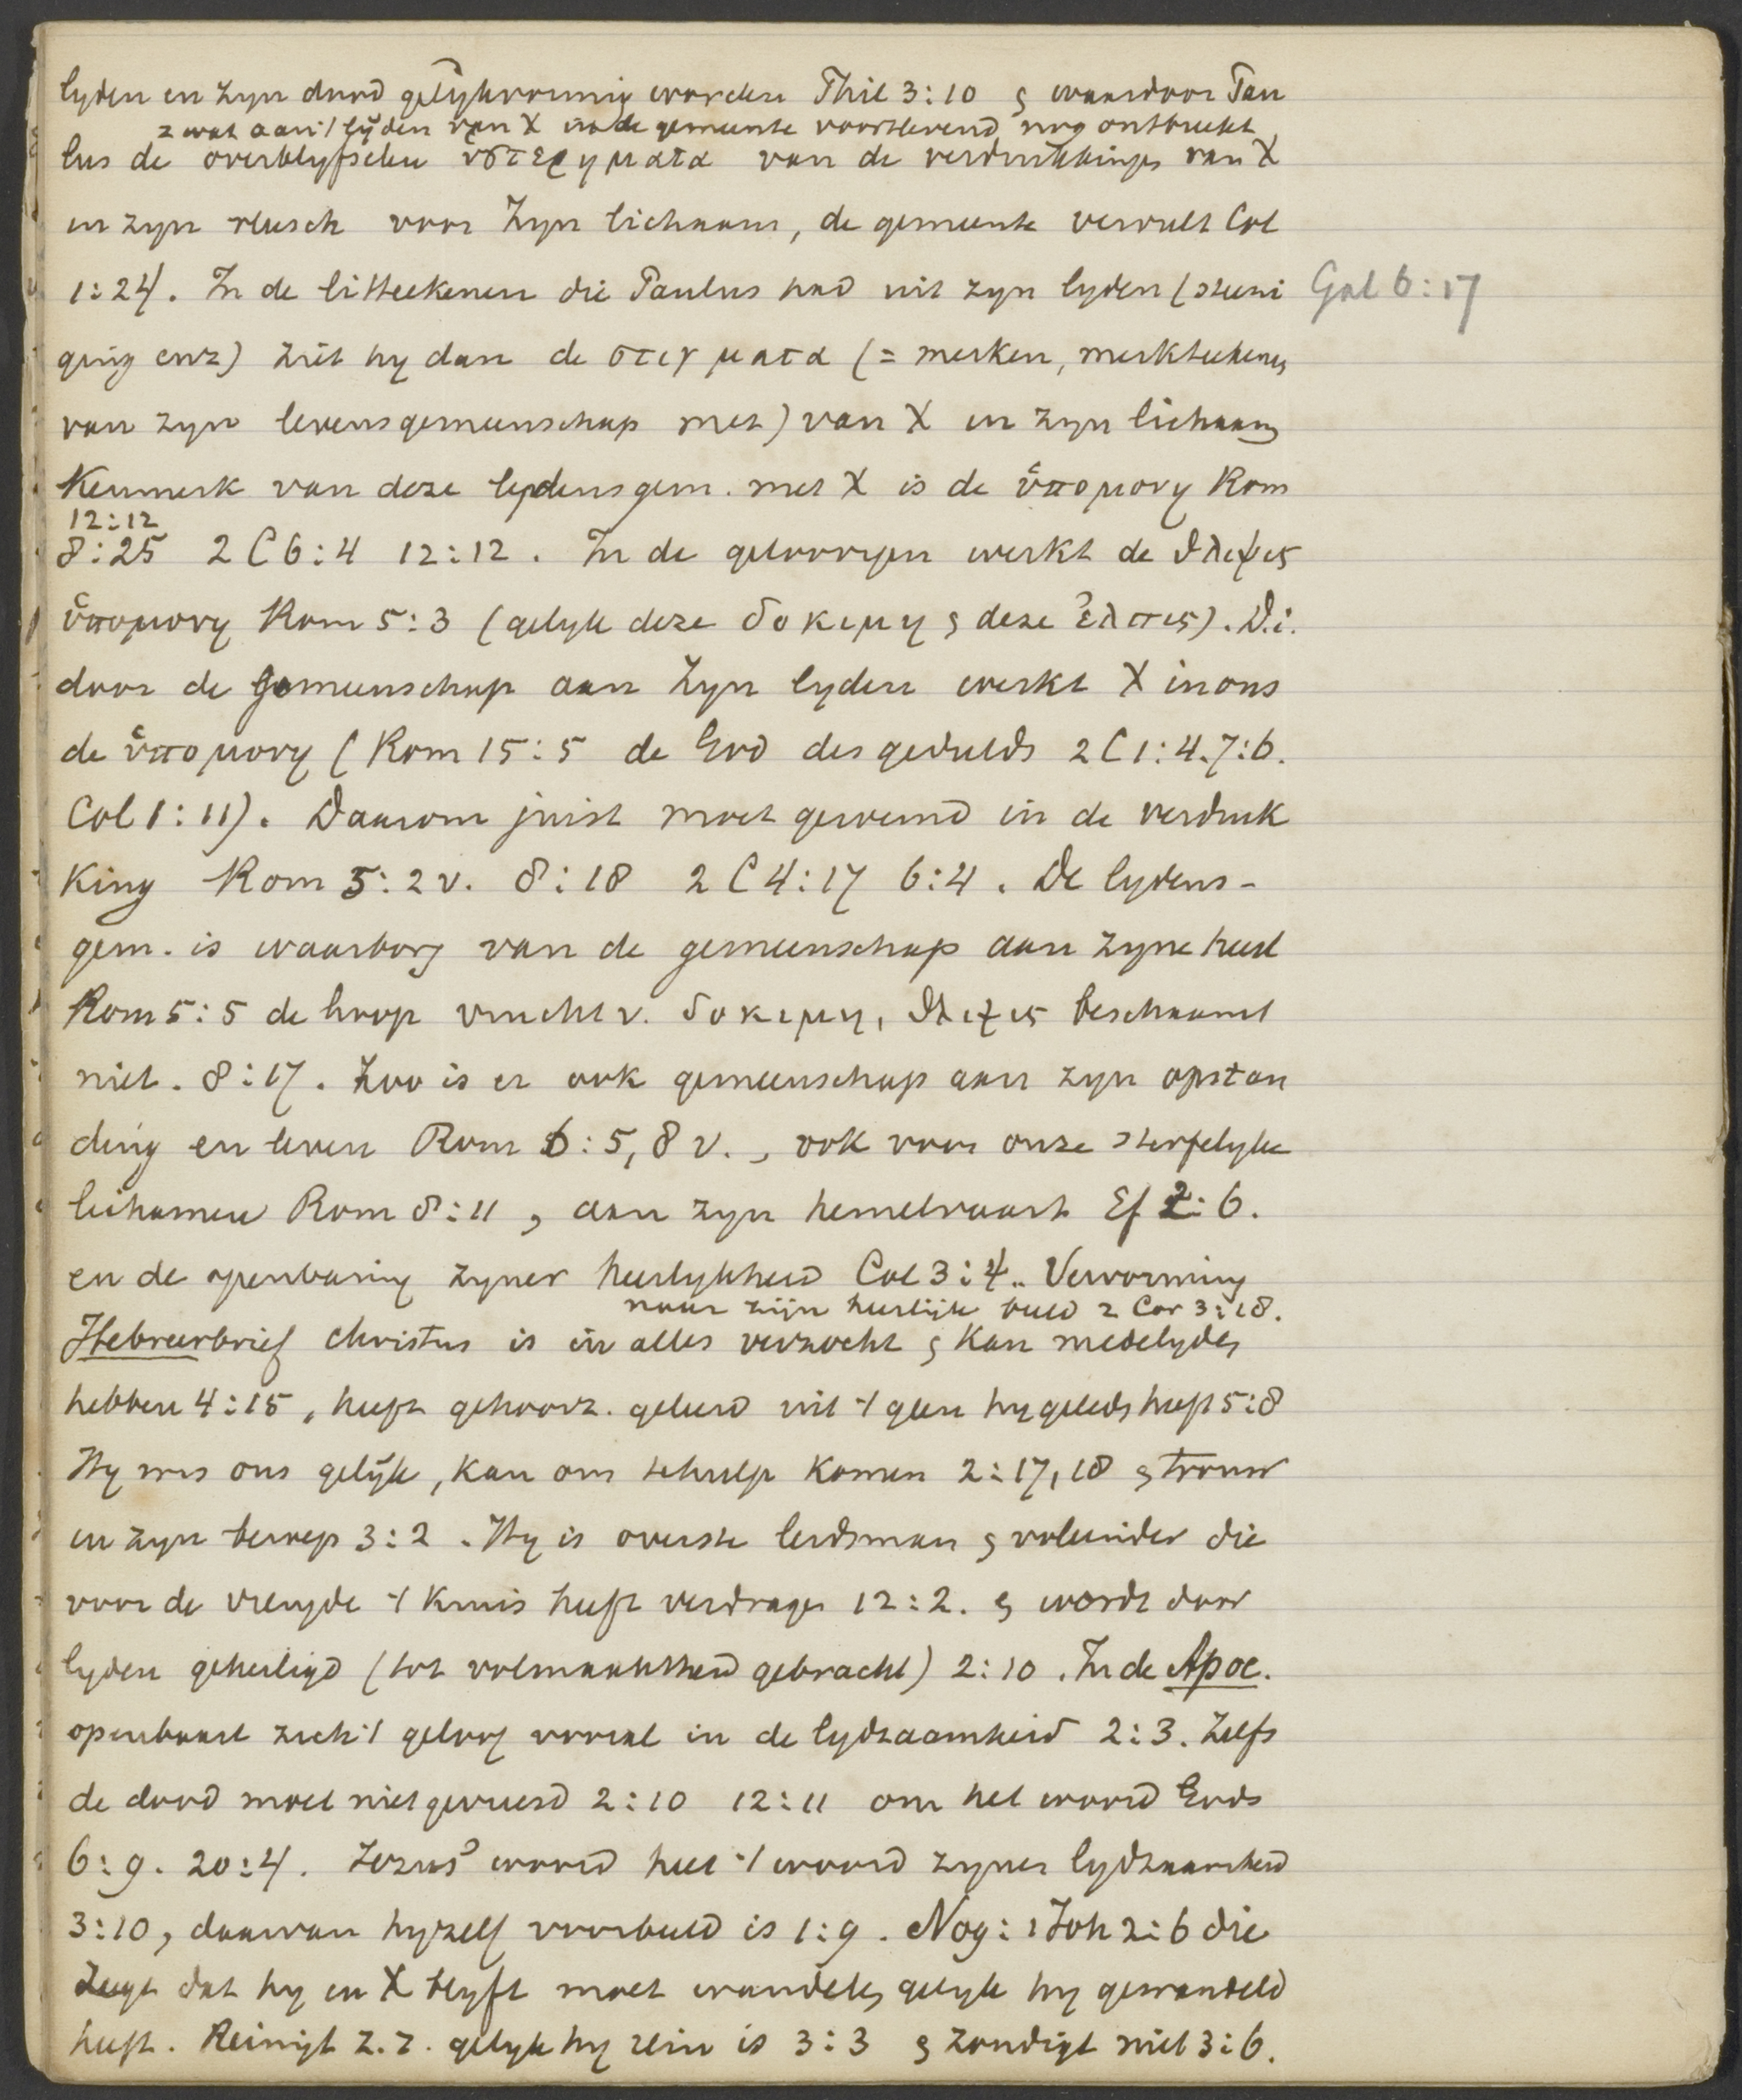 lyden en zyn dood gelykvormig worden Phil 3:10 & waardoor Pau
= wat aan 't lijden van X in de gemeente voortlevend nog ontbreekt
lus de overblyfselen ὑστερηματα van de verdrukkingen van X
in zyn vleesch voor Zyn lichaam, de gemeente vervult Col
1:24. In de litteekenen die Paulus had uit zyn lyden (steni Gal 6:17
ging enz) ziet hy dan de στιγματα (= merken, merkteekenen
van zyn levensgemeenschap met) van X in zyn lichaam
Kenmerk van deze lydensgem. met X is de ὑπομονη Rom
12:12
8:25 2 C 6:4 12:12. In de geloovigen werkt de θλιψις
ὑπομονη Rom 5:3 (gelyk deze δοκιμη & deze ἐλπις). D.i.
door de Gemeenschap aan Zyn lyden werkt X in ons
de ὑπομονη (Rom 15:5 de God des gedulds 2 C 1:4. 7:6.
Col 1:11). Daarom juist moet geroemd in de verdruk
king Rom 5:2v. 8:18 2 C 4:17 6:4. De lydens-
gem. is waarborg van de gemeenschap aan zyne heerl
Rom 5:5 de hoop vrucht v. δοκιμη, θλιψις beschaamt
niet. 8:17. Zoo is er ook gemeenschap aan zyn opstan
ding en leven Rom 6:5, 8 v., ook voor onze sterfelyke
lichamen Rom 8:11, aan zyn hemelvaart Ef 2:6.
en de openbaring zyner heerlykheid Col 3:4. Vervorming
naar zijn heerlijk beeld 2 Cor 3:18.
Hebreerbrief Christus is in alles verzocht & kan medelyden
hebben 4:15, heeft gehoorz. geleerd uit 't geen hy geleden heeft 5:8
Hy was ons gelijk, kan ons te hulp komen 2:17,18 & trouw
in zyn beroep 3:2. Hy is overste leidsman & voleinder die
voor de vreugde 't kruis heeft verdragen 12:2. & wordt door
lyden geheiligd (tot volmaaktheid gebracht) 2:10. In de Apoc.
openbaart zich 't geloof vooral in de lydzaamheid 2:3. Zelfs
de dood moet niet gevreesd 2:10 12:11 om het woord Gods
6:9. 20:4. Jezus' woord heet 't woord zyner lydzaamheid
3:10, daarvan hyzelf voorbeeld is 1:9. Nog: 1 Joh 2:6 die
zegt dat hy in X blyft moet wandelen gelyk hy gewandeld
heeft. Reinigt z.z. gelyk hy rein is 3:3 & zondigt niet 3:6.